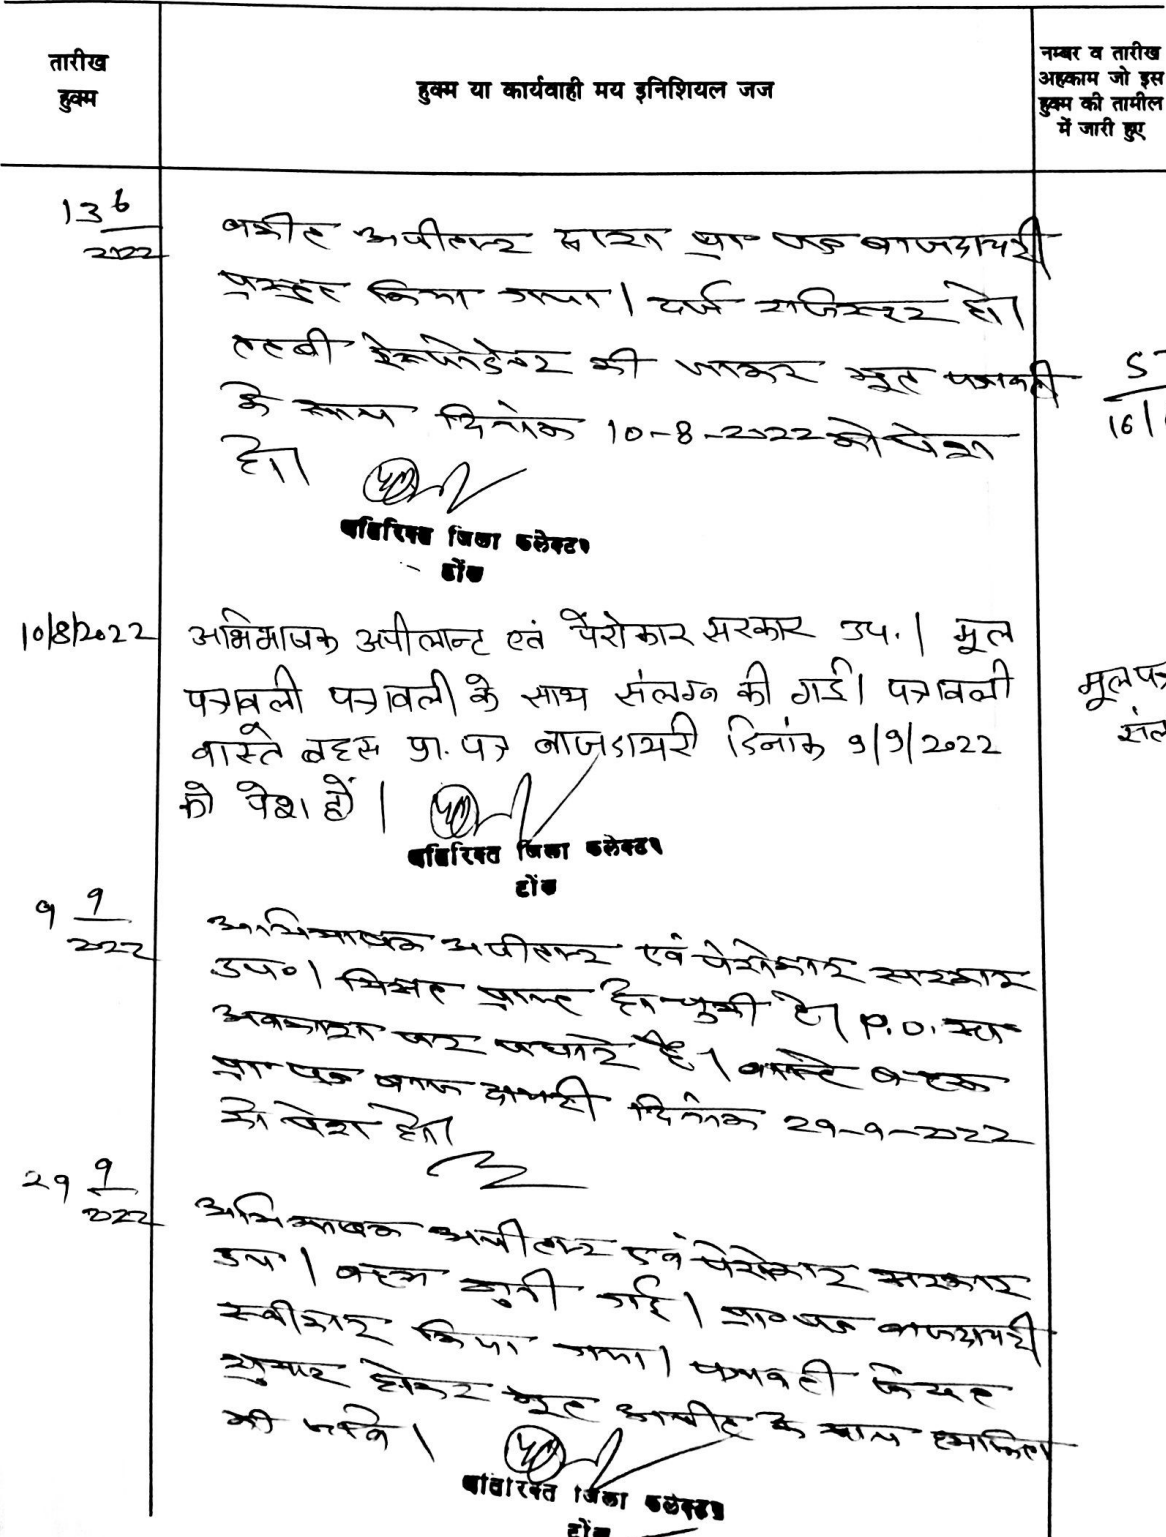 तारीख
हुक्म
हुक्म या कार्यवाही मय इनिशियल जज
नम्बर व तारीख
अहकाम जो इस
हुक्म की तामील
में जारी हुए
13 6
2022
वकील अपीलान्ट द्वारा प्रा० पत्र बाजदायरी
प्रस्तुत किया गया। दर्ज रजिस्टर हो।
तलबी रेस्पोडेन्ट की जाकर मूल पत्रावली
के साथ दिनांक 10-8-2022 को पेश
हो।
16/
अतिरिक्त जिला कलेक्टर
टोंक
10/8/2022
अभिभाषक अपीलान्ट एवं पैरोकार सरकार उप.। मूल
पत्रावली पत्रावली के साथ संलग्न की गई। पत्रावली
वास्ते बहस प्रा. पत्र बाजडायरी दिनांक 9/9/2022
को पेश हो।
मूल पत्र
संल
अतिरिक्त जिला कलेक्टर
टोंक
9 9
2022
अभिभाषक अपीलान्ट एवं पेरोकार सरकार
उप०। मिसल प्राप्त हो चुकी है। P.O. सा०
अवकाश पर पधारे है। वास्ते बहस
प्रा० पत्र बाजदायरी दिनांक 29-9-2022
को पेश हो।
29 9
2022
अभिभाषक अपीलान्ट एवं पेरोकार सरकार
उप०। बहस सुनी गई। प्रा० पत्र बाजदायरी
स्वीकार किया गया। पत्रावली फैसल
शुमार होकर मूल अपील के साथ शामिल
की जावे।
अतिरिक्त जिला कलेक्टर
टोंक